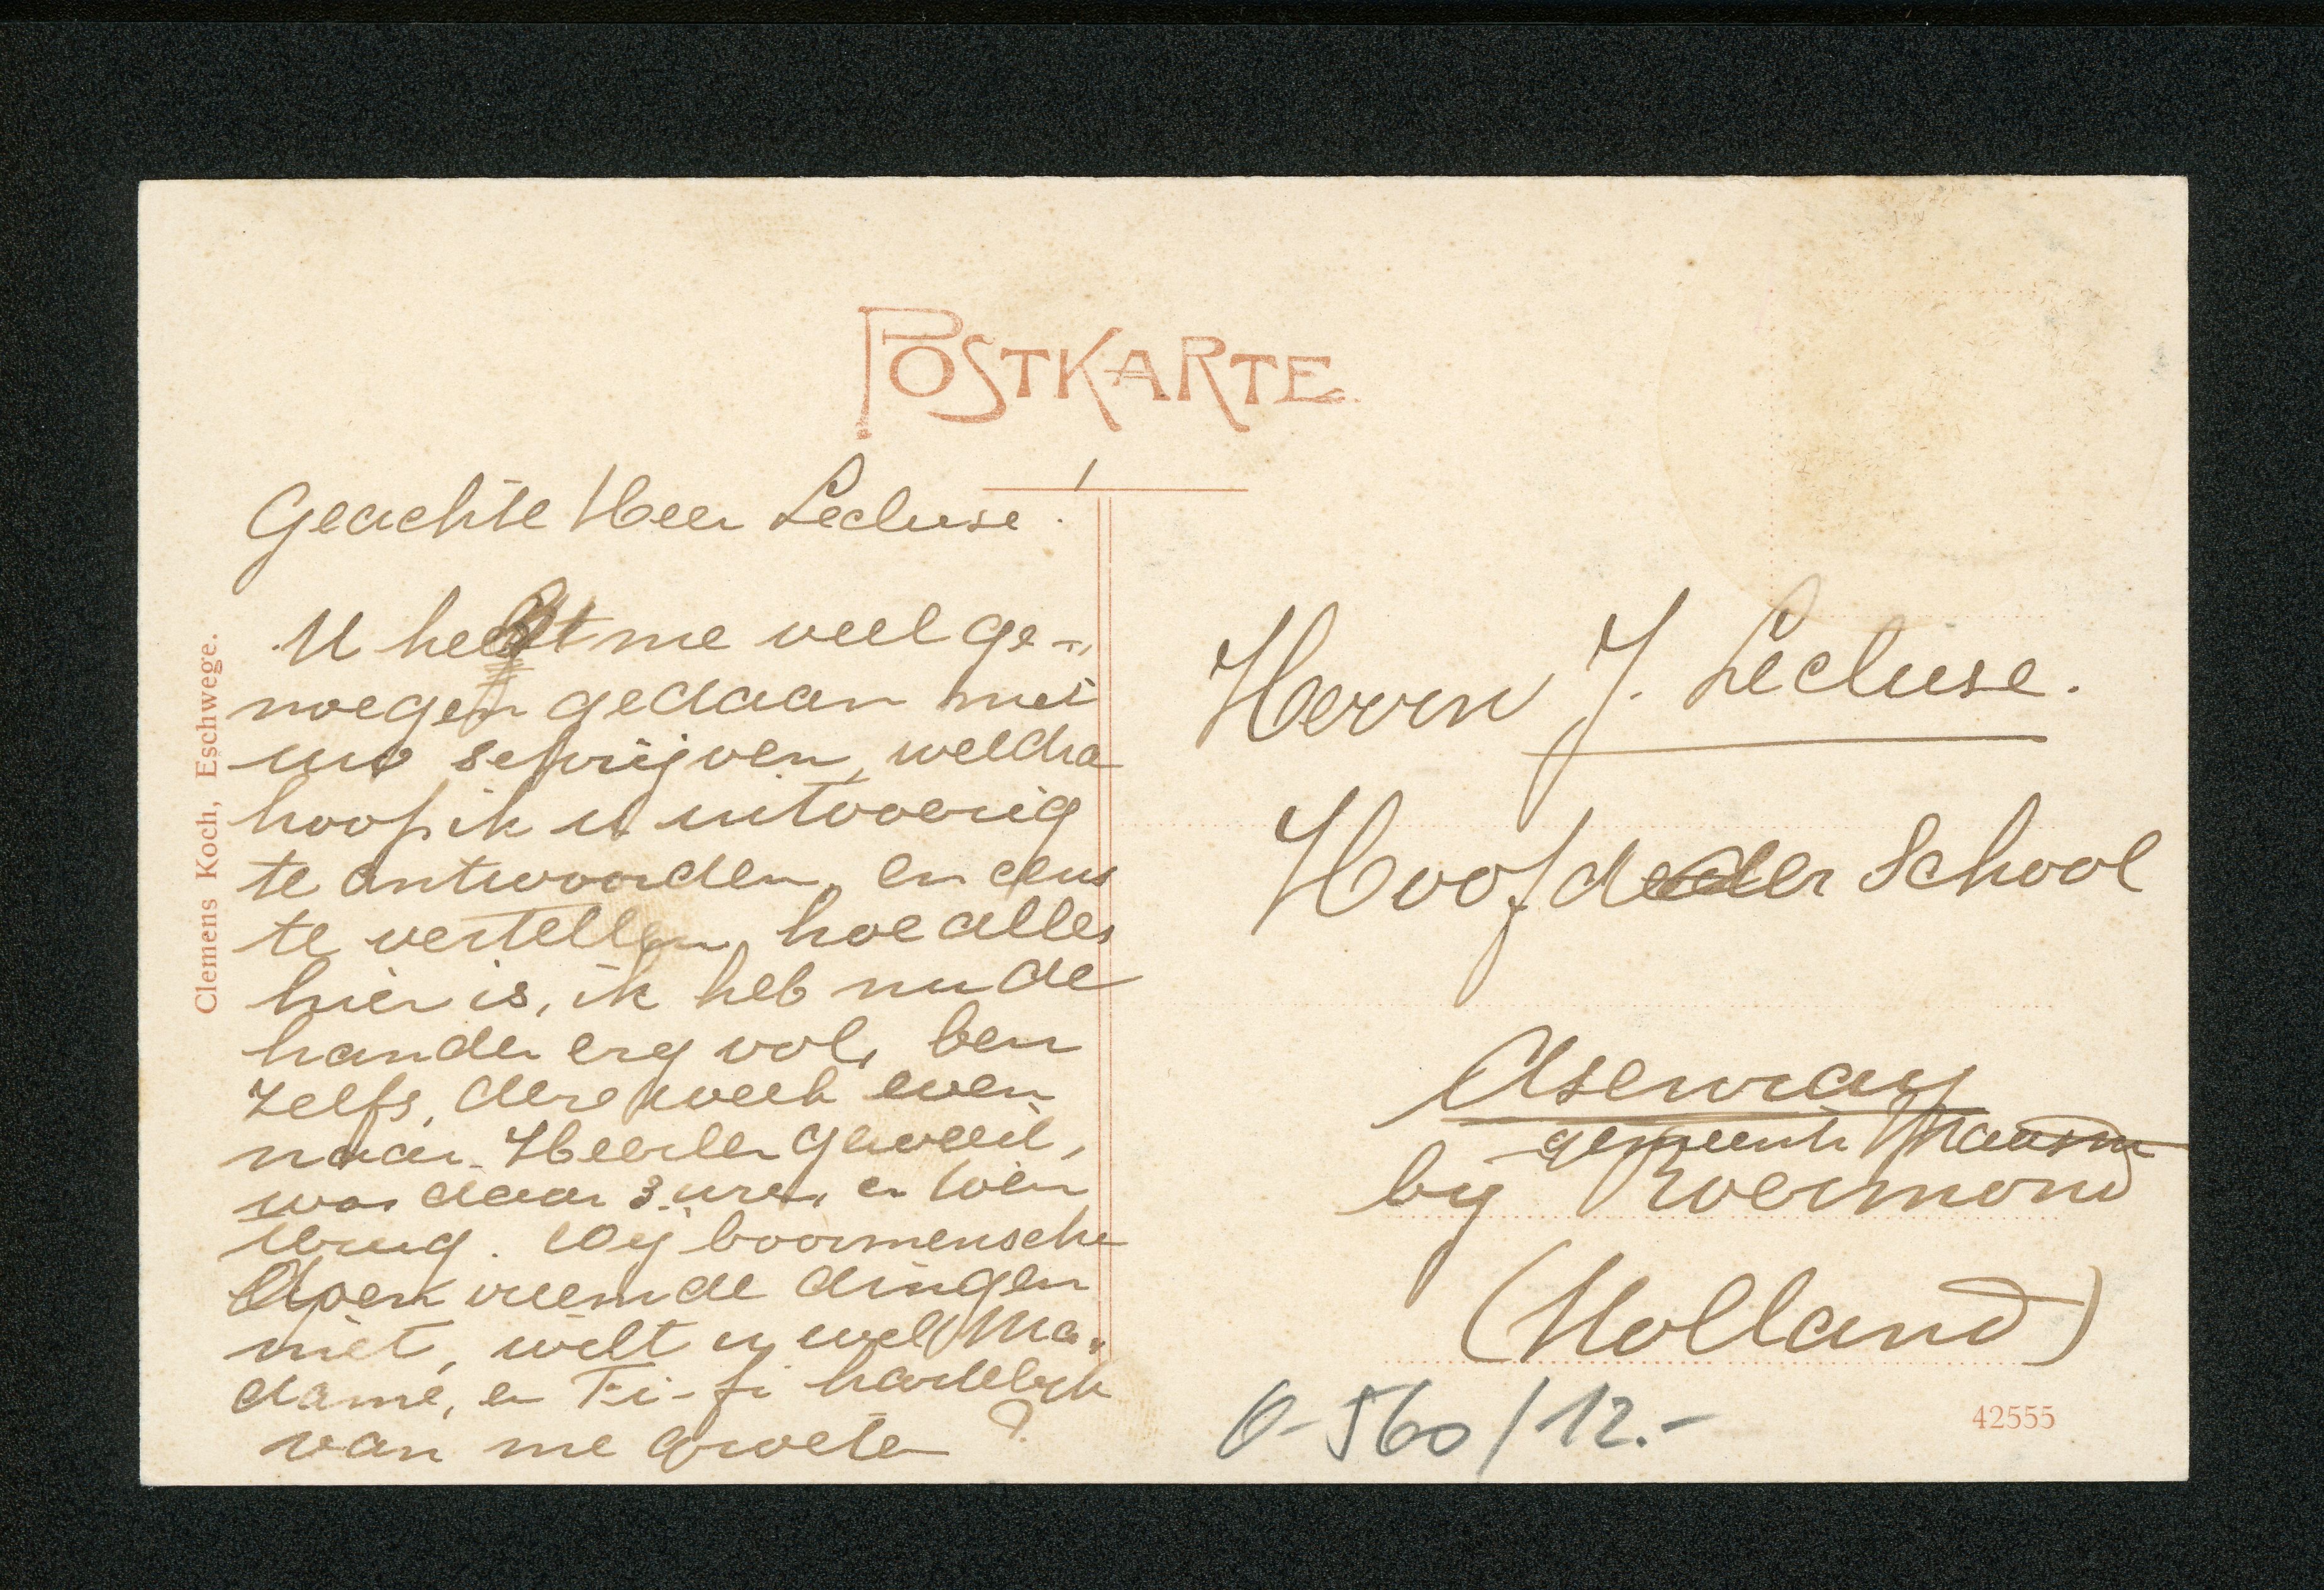 POSTKARTE
Clemens Koch, Eschwege.
Geachte Heer Lecluse.
U heeft me veel ge-
noegen gedaan met
uw schrijven, weldra
hoop ik u uitvoerig
te antwoorden, en eens
te vertellen, hoe alles
hier is, ik heb nu de
handen erg vol, ben
zelfs, deze week even
naar Heerlen geweest,
was daar 3 uren, en toen
terug. Wij boormenschen
vreemde dingen
niet, wilt u wel Ma-
dame, en Fi-fi hartelijk
van me groeten ?
Herrn J. Lecluse.
Hoofd der School
Asenray
gemeente Maasn
by Roermond
(Holland)
0-560/12.-
42555